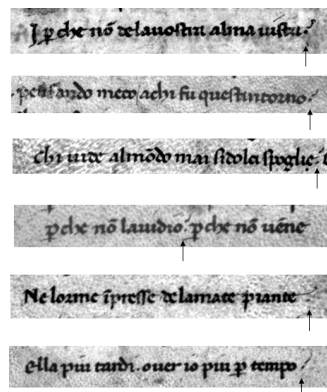 I ꝑche nō delauostra alma uista.
pensando meco achi fu questintorno.
chi uide almōdo mai sidolci spoglie.
ꝑche nō lauidio. ꝑche nō uēne
Ne lorme īpresse delamate piante
Ella piu tardi. ouer io piu ꝑ tempo